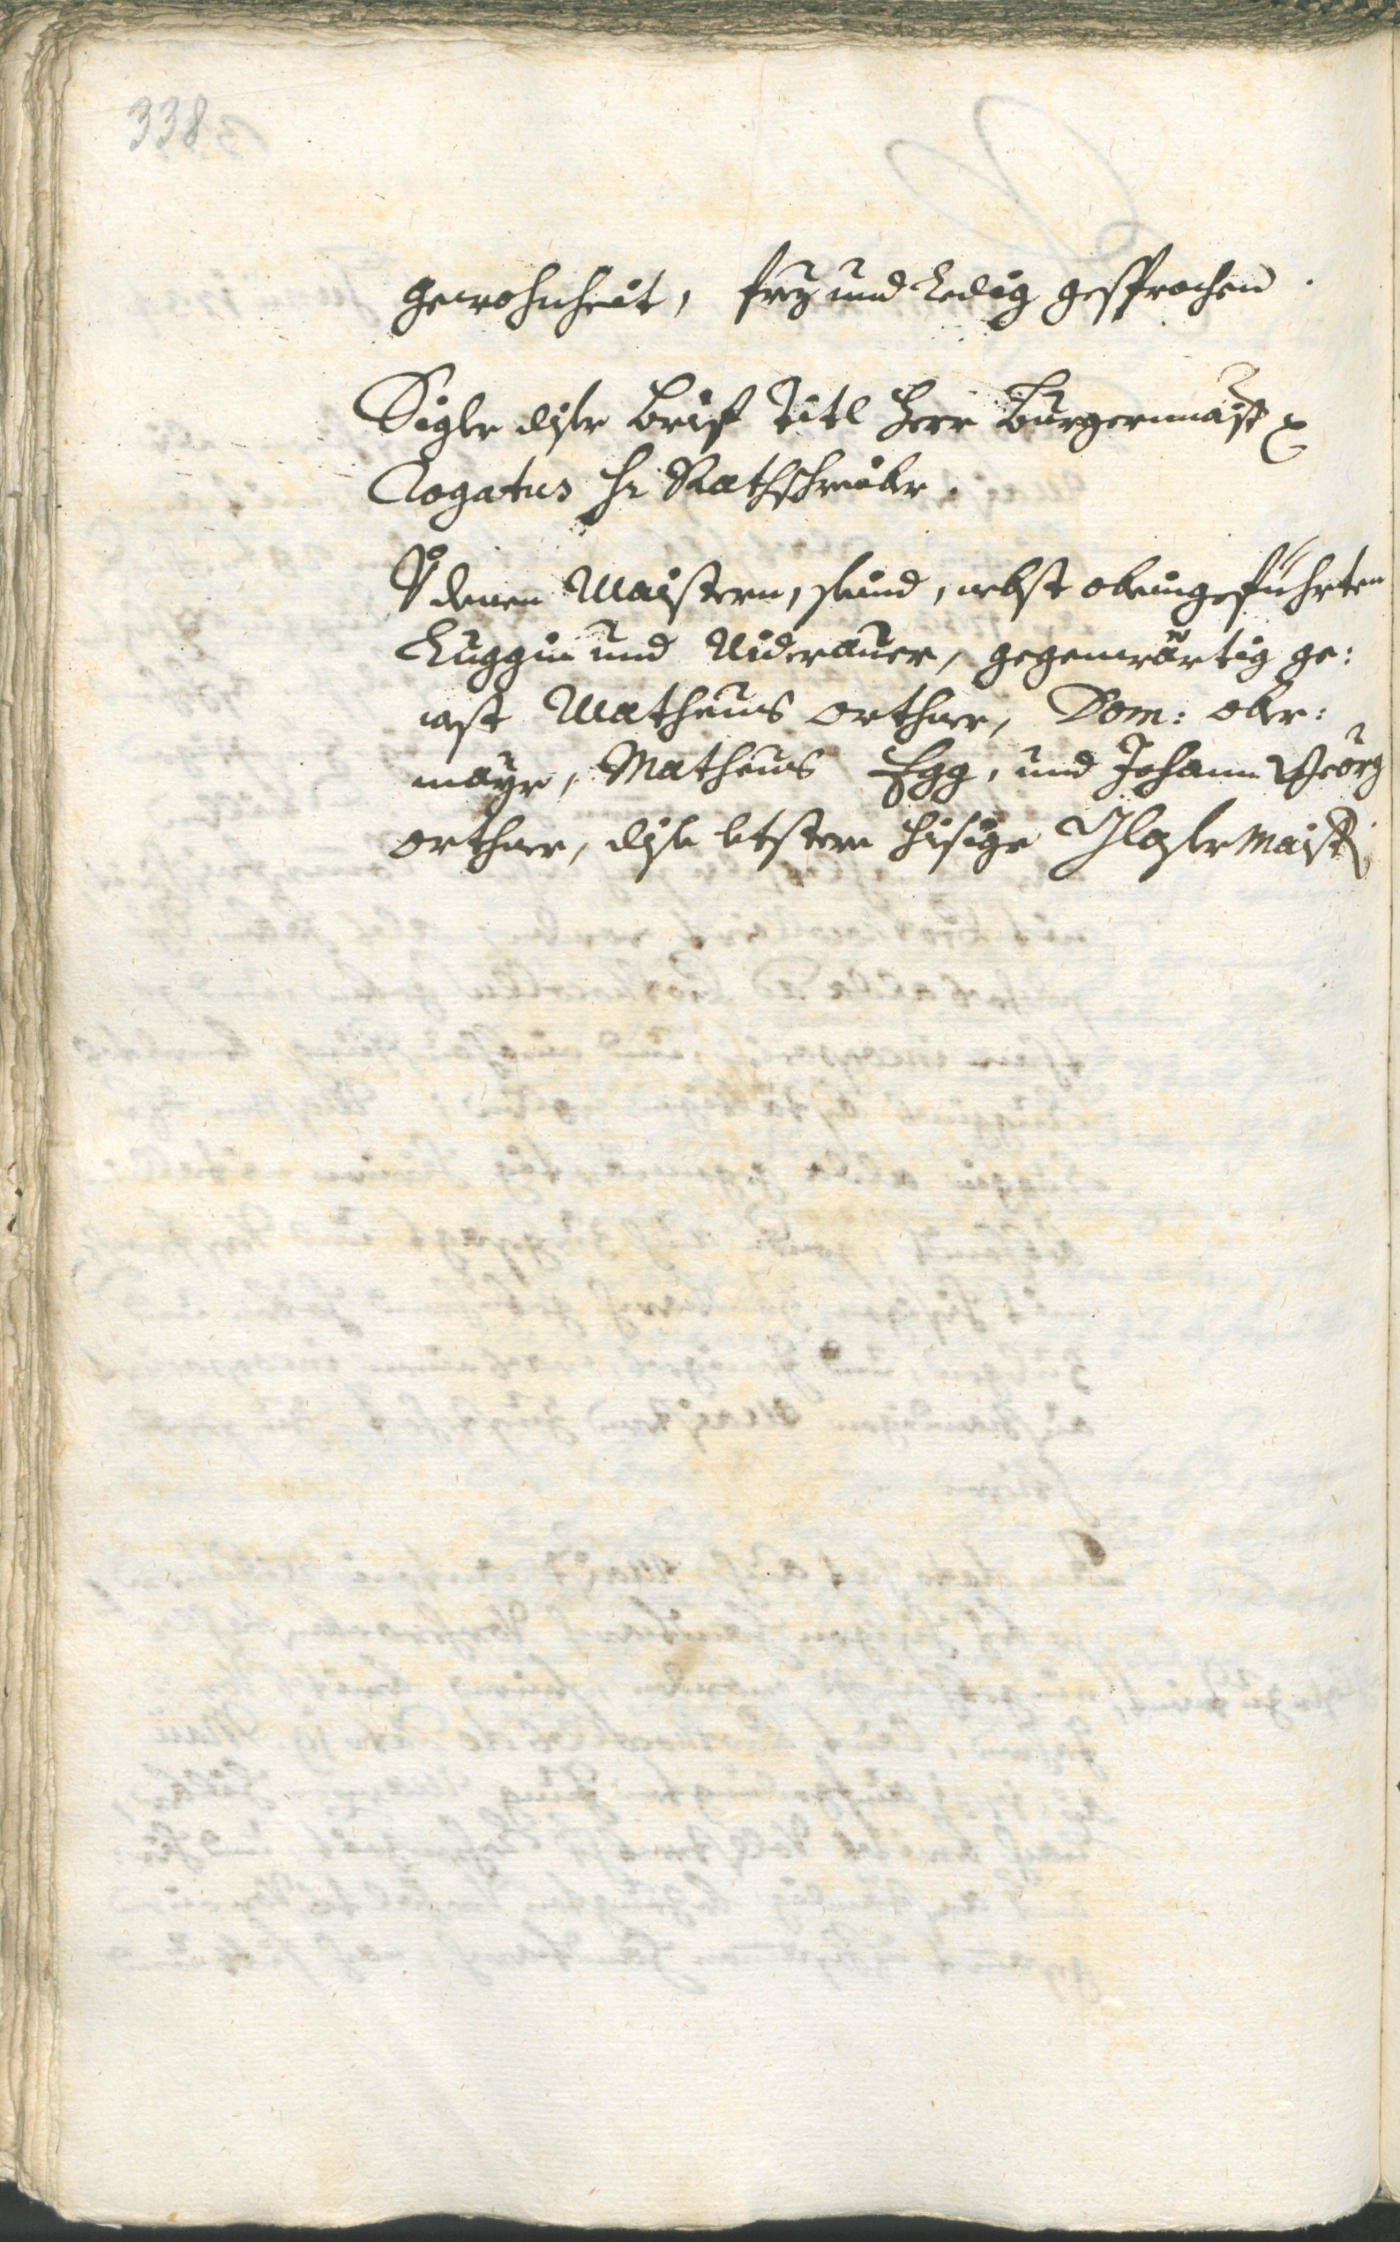 338
gewohnheit, frey und Ledig gesprochen.
Sigler diser brief Titl Herr Burgermaist
Rogatus Hr Rathschreiber.
denen Maistern, seind, nebst obeingeführten
Luggin und Niderauer, gegenwärtig ge:
west Matheus orthner, Dom: ober:
mayr, Matheus Egg, und Johann Georg
orthner, dise letstere hisige Glaser Maist